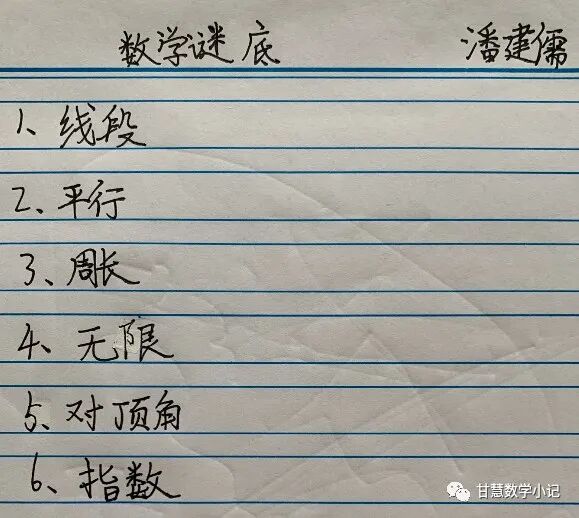 数学谜底 潘建儒
1、线段
2、平行
3、周长
4、无限
5、对顶角
6、指数
甘慧数学小记